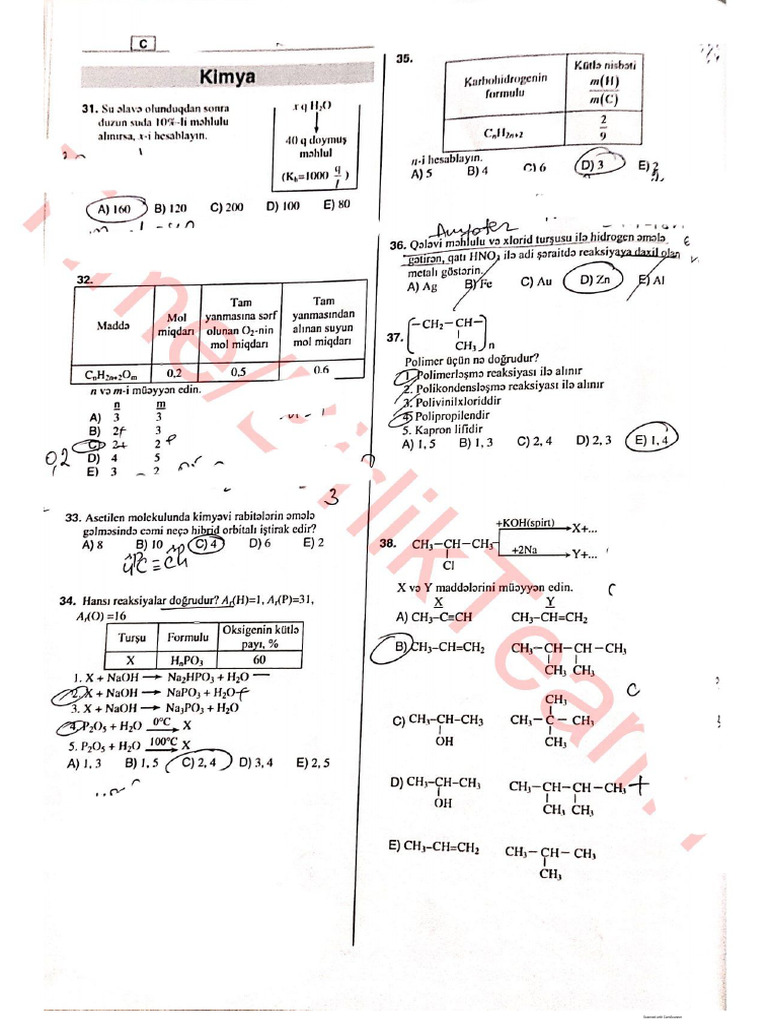 C
Kimya
31. Su əlavə olunduqdan sonra
duzun suda 10%-li məhlulu
alınırsa, x-i hesablayın.
x q H₂O
40 q doymuş
məhlul
(Kₕ=1000 q/l)
A) 160 B) 120 C) 200 D) 100 E) 80
32.
Maddə | Mol miqdarı | Tam yanmasına sərf olunan O₂-nin mol miqdarı | Tam yanmasından alınan suyun mol miqdarı
CₙH₂ₙ₊₂Oₘ | 0,2 | 0,5 | 0.6
n və m-i müəyyən edin.
n m
A) 3 3
B) 2 3
C) 2 2
D) 4 5
E) 3 2
0,2
3
33. Asetilen molekulunda kimyəvi rabitələrin əmələ
gəlməsində cəmi neçə hibrid orbitalı iştirak edir?
A) 8 B) 10 C) 4 D) 6 E) 2
34. Hansı reaksiyalar doğrudur? Aᵣ(H)=1, Aᵣ(P)=31,
Aᵣ(O) =16
Turşu | Formulu | Oksigenin kütlə payı, %
X | HₙPO₃ | 60
1. X + NaOH → Na₂HPO₃ + H₂O
2. X + NaOH → NaPO₃ + H₂O
3. X + NaOH → Na₃PO₃ + H₂O
4. P₂O₅ + H₂O 0°C→ X
5. P₂O₅ + H₂O 100°C→ X
A) 1, 3 B) 1, 5 C) 2, 4 D) 3, 4 E) 2, 5
35.
Karbohidrogenin formulu | Kütlə nisbəti m(H)/m(C)
CₙH₂ₙ₊₂ | 2/9
n-i hesablayın.
A) 5 B) 4 C) 6 D) 3 E) 2
Amfoter
36. Qələvi məhlulu və xlorid turşusu ilə hidrogen əmələ
gətirən, qatı HNO₃ ilə adi şəraitdə reaksiyaya daxil olan
metalı göstərin.
A) Ag B) Fe C) Au D) Zn E) Al
37. [–CH₂–CH–]n
CH₃
Polimer üçün nə doğrudur?
1. Polimerləşmə reaksiyası ilə alınır
2. Polikondensləşmə reaksiyası ilə alınır
3. Polivinilxloriddir
4. Polipropilendir
5. Kapron lifidir
A) 1, 5 B) 1, 3 C) 2, 4 D) 2, 3 E) 1, 4
38. CH₃–CH–CH₃
Cl
+KOH(spirt) → X+...
+2Na → Y+...
X və Y maddələrini müəyyən edin.
X Y
A) CH₃–C≡CH CH₃–CH=CH₂
B) CH₃–CH=CH₂ CH₃–CH–CH–CH₃
CH₃ CH₃
CH₃
C) CH₃–CH–CH₃ CH₃–C–CH₃
OH CH₃
D) CH₃–CH–CH₃ CH₃–CH–CH–CH₃
OH CH₃ CH₃
E) CH₃–CH=CH₂ CH₃–CH–CH₃
CH₃